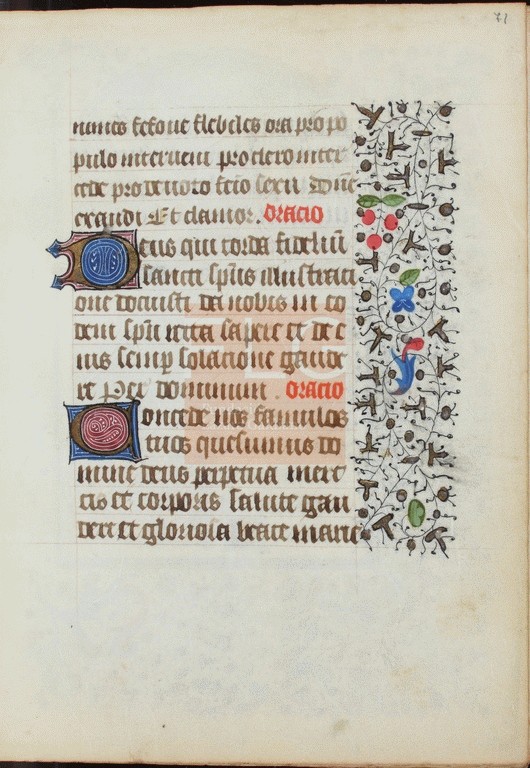 71
nimes refoue flebiles ora pro po
pulo interueni pro clero inter
cede pro deuoto feīo sexu Dñe
exaudi Et clamor. Oracio
Deus qui corda fideliū
sancti sp̄us illustraci
one docuisti da nobis in eo
dem sp̄u recta sapere et de e
ius semp̄ solacione gaude
re Per dominum . Oracio
Concede nos famulos
tuos quesumus do
mine deus perpetua men
tis et corporis salute gau
dere et gloriosa beate marie